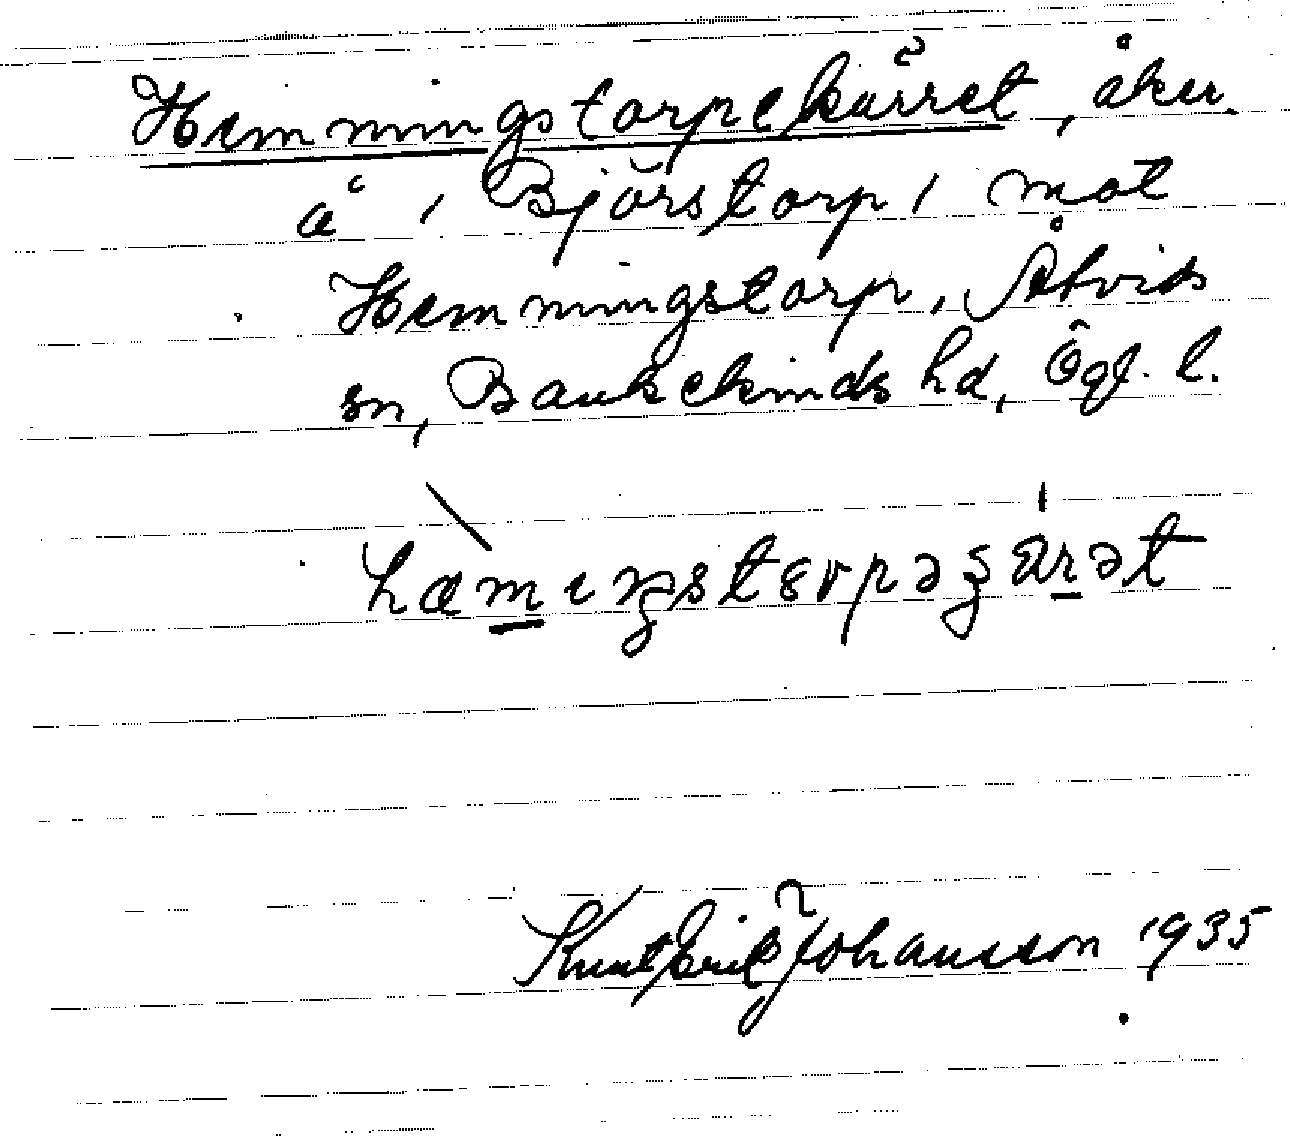 Hemmingstorpekärret, åker
å i Björstorp, mot
Hemmingstorp, Åtvids
sn, Bankekinds hd, Ögl. l.
Knut Erik Johansson 1935